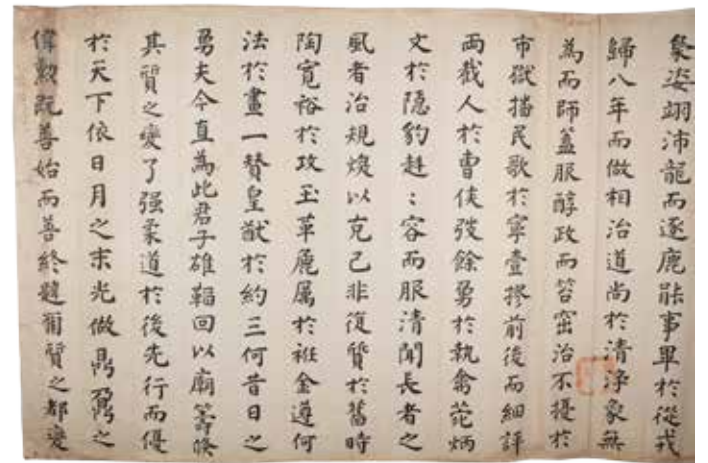 象姿翊沛龍而逐鹿能事畢於從戎
歸八年而做相治道尚於清淨象無
為而師蓋服醇政而答蜜治不擾於
市獄播民歌於寧壹摎前後而細評
兩截人於曹侯發餘勇於執禽花炳
文於隱豹赳：容而服清聞長者之
風者治規煥以克己非復質於舊時
陶寬裕於攻玉革麁厲於袵金遵何
法於畫一贊皇猷於約三何昔日之
勇夫今直為此君子雄韜回以廟籌喚
其質之變了强柔道於後先行而優
於天下依日月之末光做鼎鼐之
偉勳既善始而善終韙爾質之都變